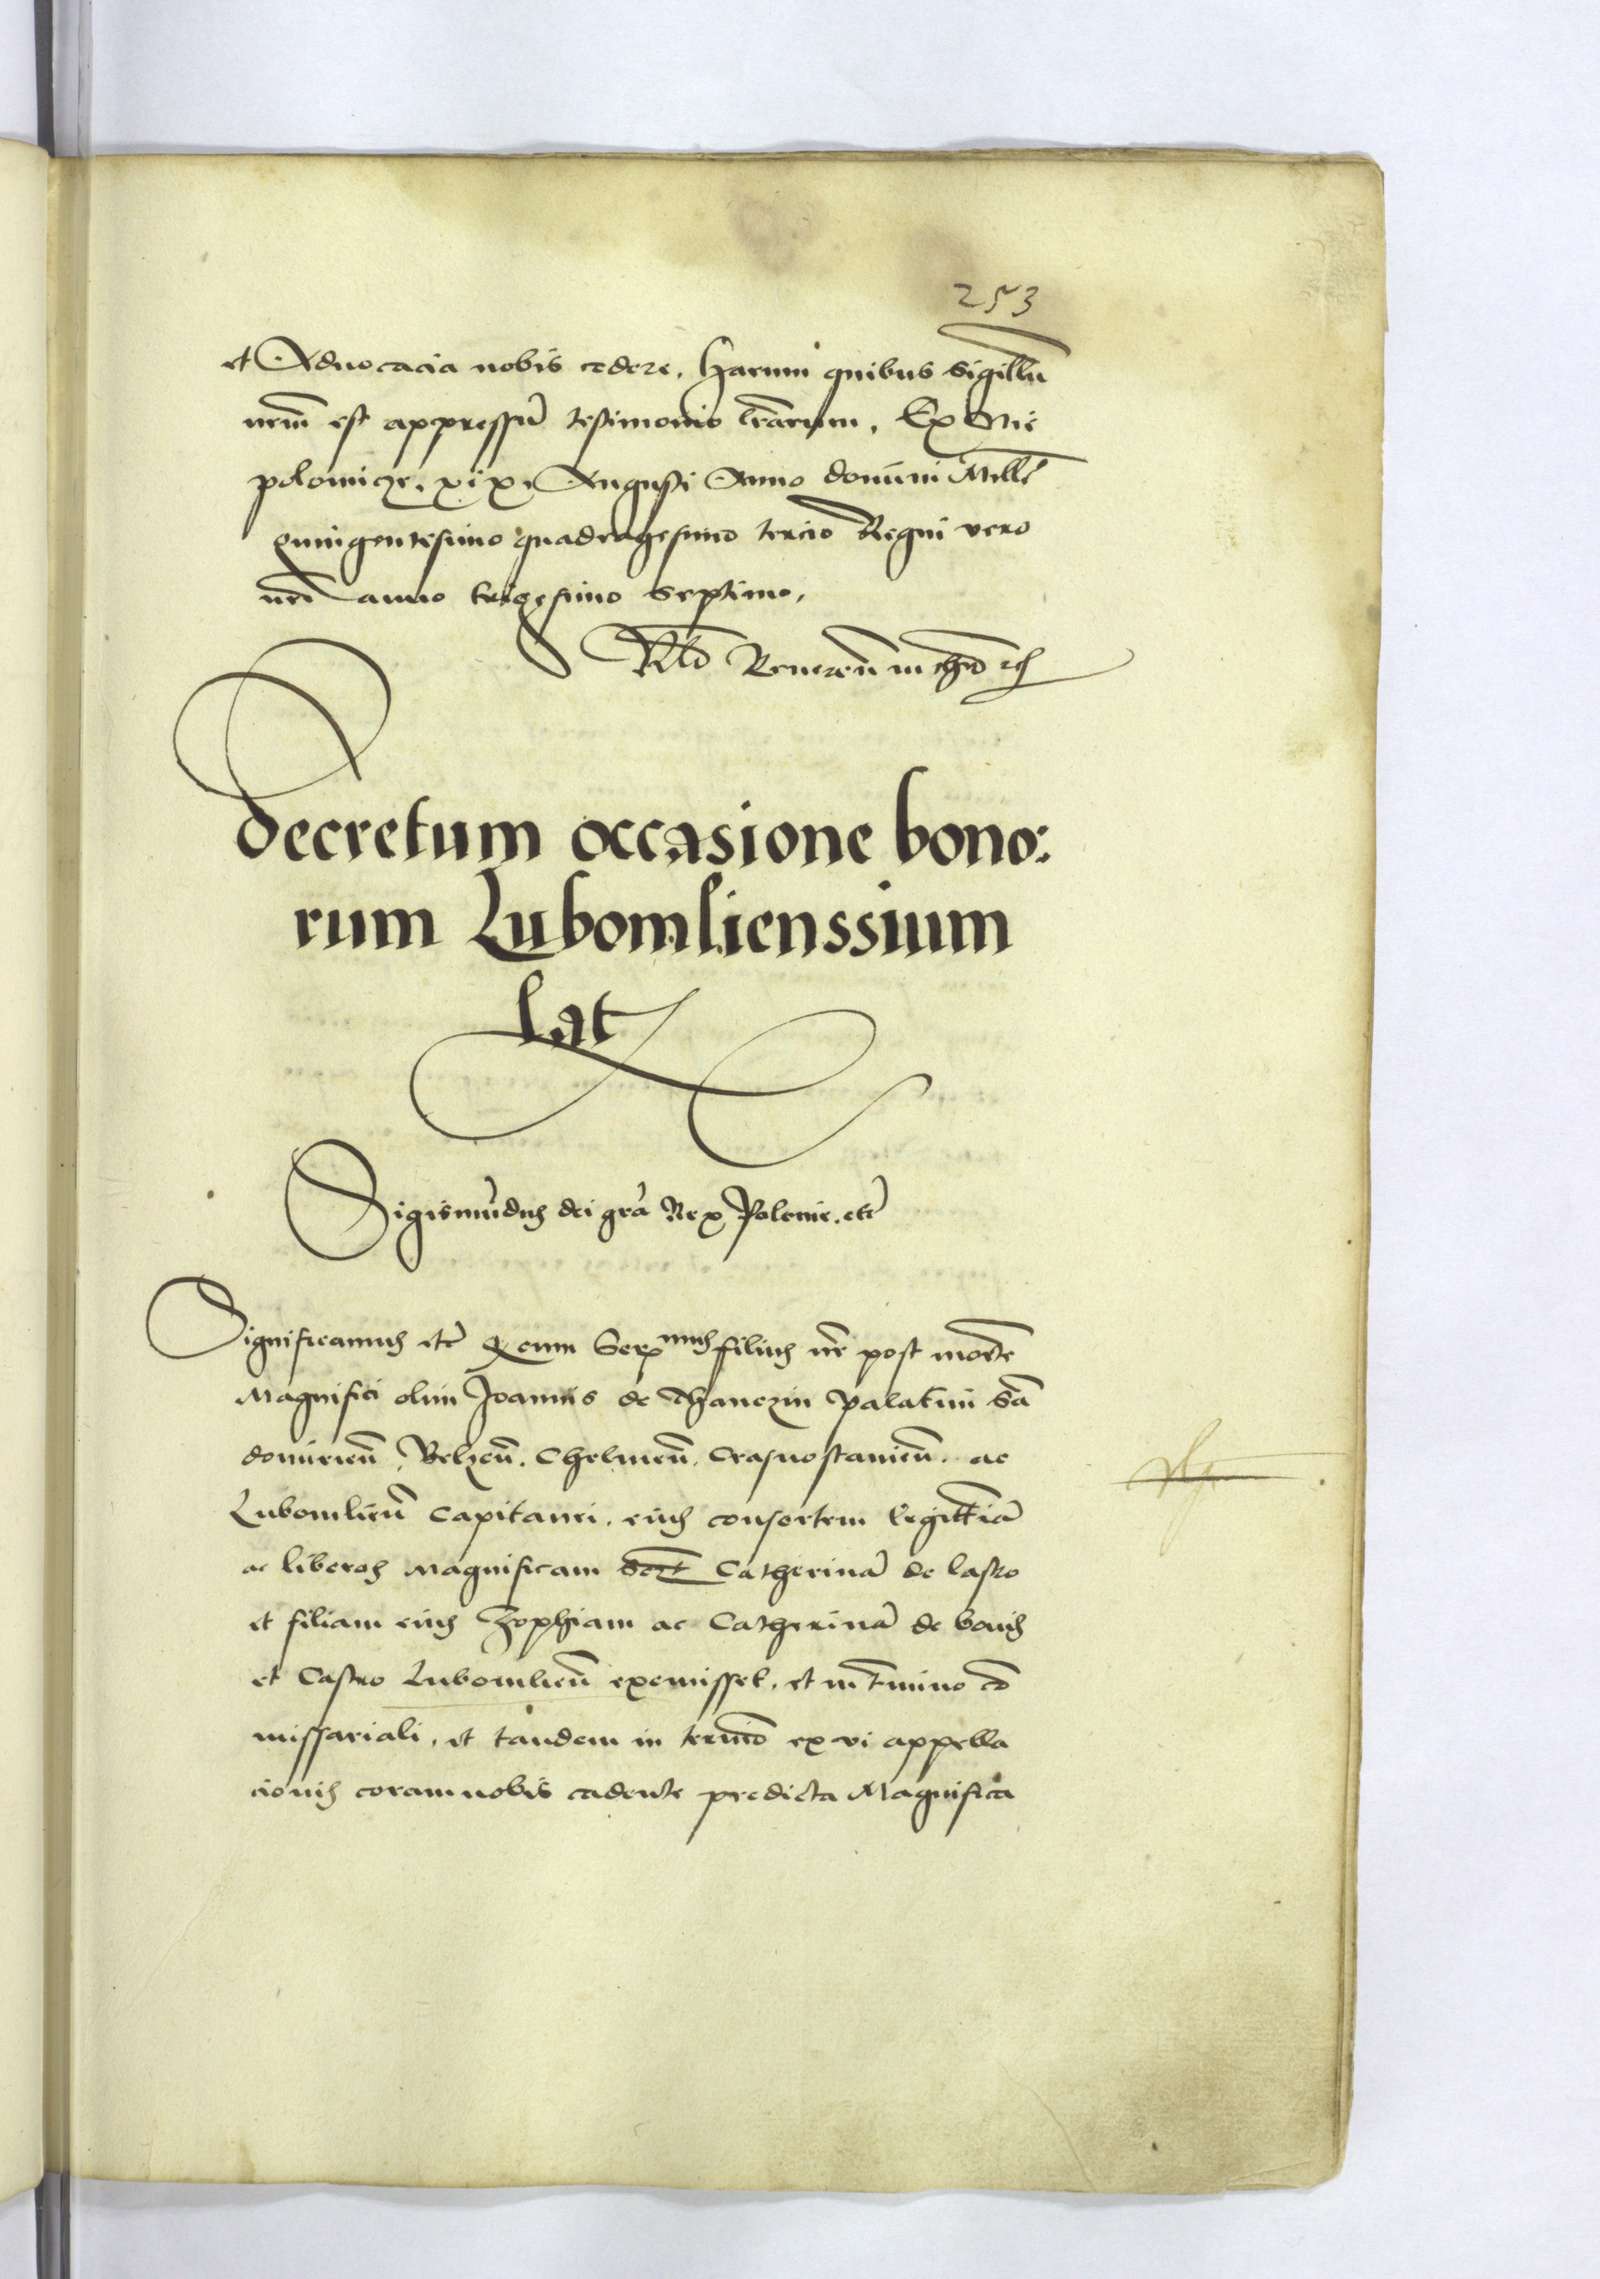 253
et Aduocacia nobis cedere. Harum quibus sigillũ
nrm̃ est appressũ testimonio lr̃arum. Ex Nie
polomicze. xix. Augusti Anno domini Mill̃
quingentesimo quadragesimo tercio Regni vero
nr̃i anno trigesimo septimo.
Rl̃o Reueren̄ in chr̃o
Decretum occasione bono:
rum Lubomlienssium
lat
Sigismũdus dei gr̃a Rex Polonie. etc̃
Significamus etc̃ Q cum Ser nmus filius nr̃ post mortẽ
Magnifici olim Joannis de Thanczin Palatini Sã
domirien̄, Belzen̄. Chelmen̄. Crasnostauien̄. ac
Lubomlien̄ Capitanei. eius consortem legittimã
ac liberos Magnificam Catherinã de lasko
et filiam eius Zophiam ac Catherinã de bonis
et Castro Lubomlien̄ exemisset. et in t̃mino cõ
missariali. et tandem in termĩo ex vi appella
cionis coram nobis cadente predicta Magnifica